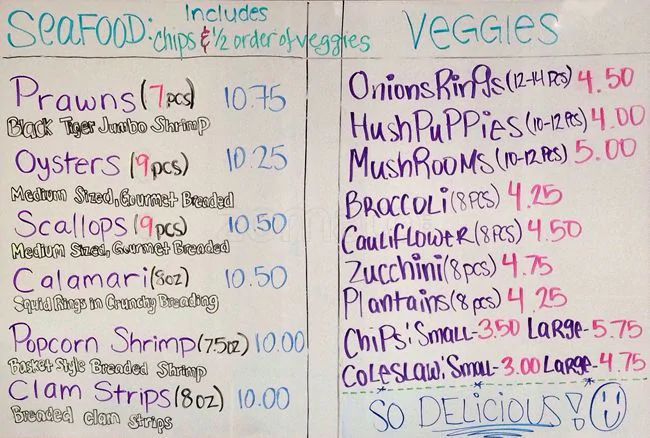 SEAFOOD: Includes
chips & 1/2 order of veggies
Prawns (7pcs) 10.75
Black Tiger Jumbo Shrimp
Oysters (9pcs) 10.25
Medium Sized, Gourmet Breaded
Scallops (9pcs) 10.50
Medium Sized, Gourmet Breaded
Calamari (8oz) 10.50
Squid Rings in Crunchy Breading
Popcorn Shrimp (7.5oz) 10.00
Basket Style Breaded Shrimp
Clam Strips (8oz) 10.00
Breaded clam strips
VEGGIES
Onions Rings (12-14 pcs) 4.50
HushPuPPies (10-12 Pcs) 4.00
MushRooms (10-12 Pcs) 5.00
BROCCOLi (8 PCS) 4.25
CauliflowER (8 PCS) 4.50
Zucchini (8 pcs) 4.75
Plantains (8 pcs) 4.25
ChiPs: Small-3.50 LaRge-5.75
Coleslaw: Small-3.00 LaRge-4.75
SO DELICIOUS!